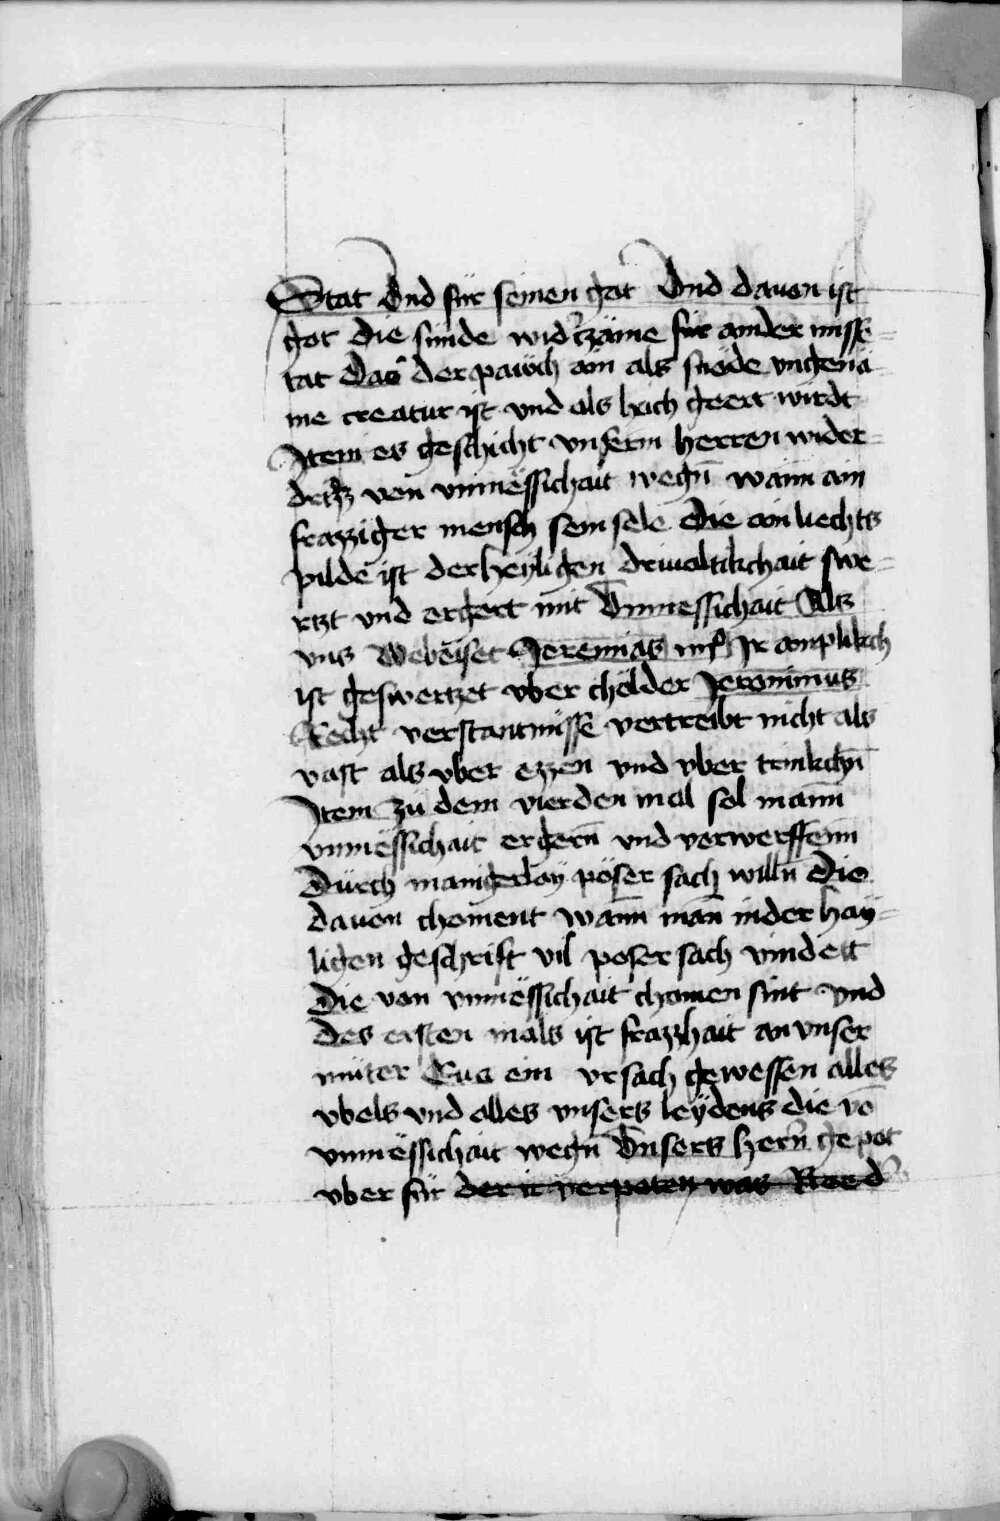 Stat Vnd für seinen got Vnd dauon ist
got die sunde widˀzäme für annder misse-
tat Das der paüch ain als snöde vngenä-
me creatur ist vnd als hoch geert wirdt
Item es geschicht vnserm herren wider-
dries von vnmëssichait wegn̄ wann ain
frazziger mensch sein sele Die ain liechts
pilde ist der heyligen driualtikchait swe-
rtzt vnd ergert mit Vnmessichait Als
vns Webeiset Jeremias iiij Ir antplikch
ist geswertzet vber cholder Jeronimus
Recht verstantnüsse vertreibt nicht als
vast als vber ezzen vnd vber trinkchn̄
Item zu dem vierden mal sol mann
vnmëssichait ergern̄ vnd verwerffenn
Dürch manigerlay pöser sach willn̄ Die
dauon choment Wann man in der hay-
ligen geschrift vil poser sach vindett
Die von vnmëssichait chomen sint vnd
des ersten mals ist frazzhait an vnser
müter Eua ein vrsach gewessen alles
vbels vnd alles vnsers leydens die vō
vnmëssichait wegn̄ Vnsers hern̄ gepot
vber für der ir verpoten was